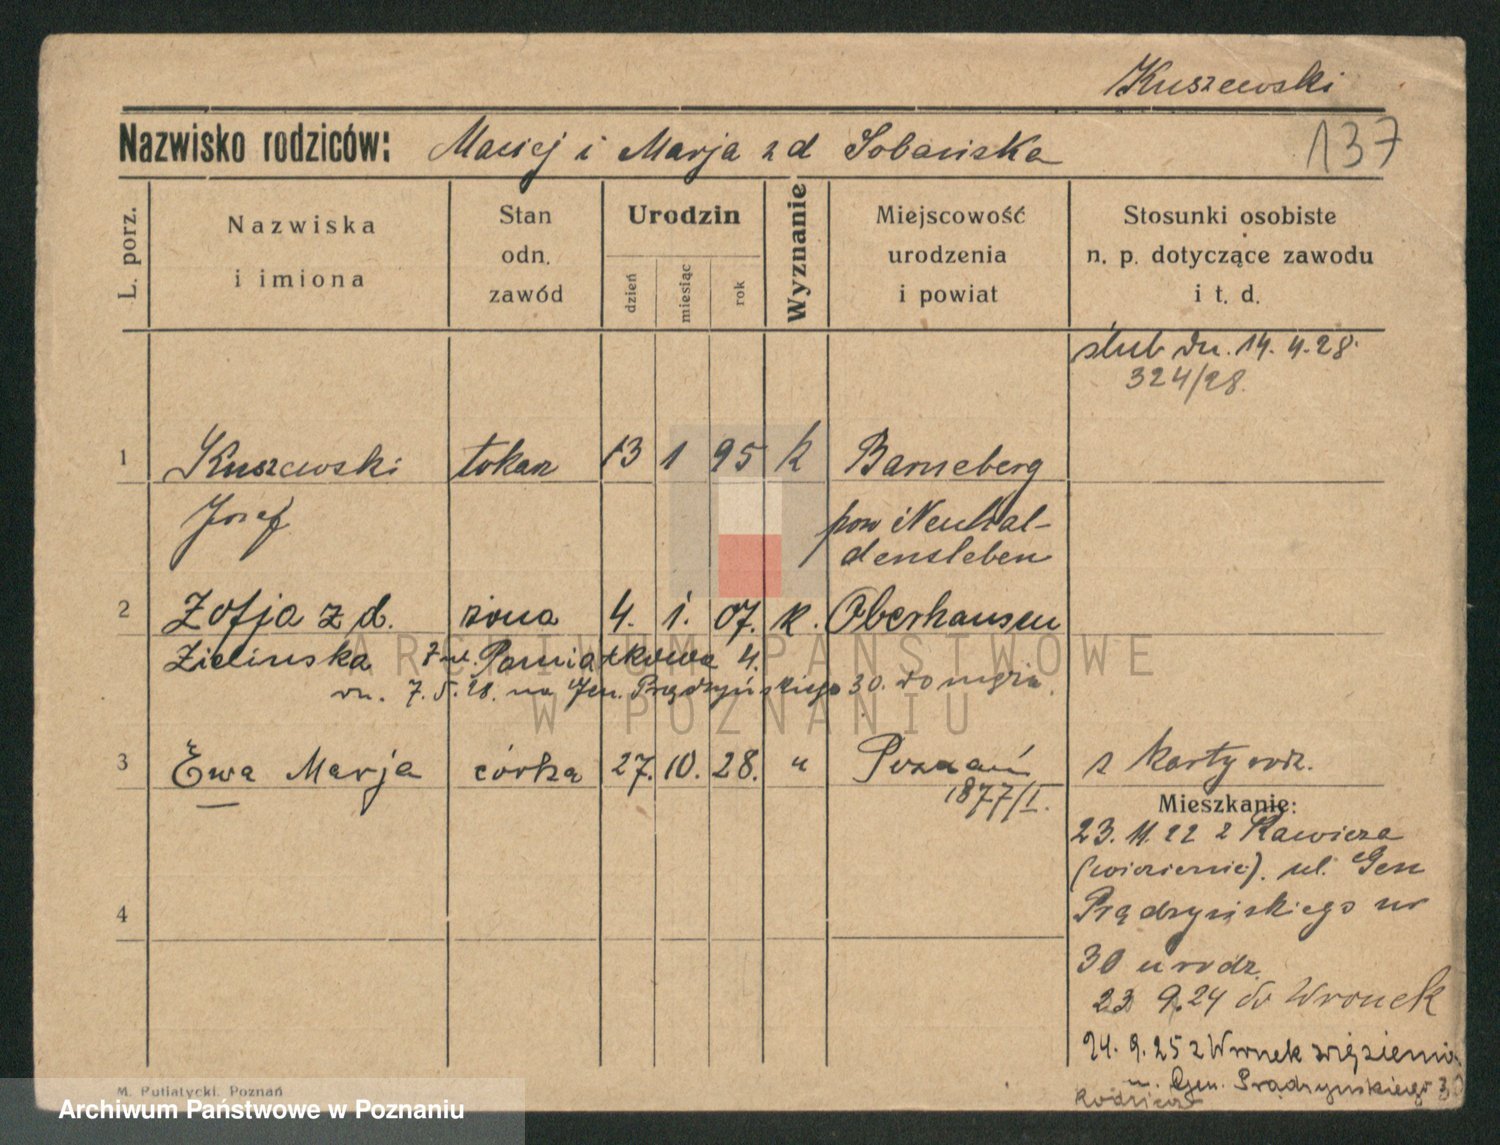 Kuszewski
Nazwisko rodziców: Maciej i Marja z d Sobańska
137
L. porz.
Nazwiska
i imiona
Stan
odn.
zawód
Urodzin
dzień
miesiąc
rok
Wyznanie
Miejscowość
urodzenia
i powiat
Stosunki osobiste
n. p. dotyczące zawodu
i t. d.
ślub dn. 14. 4. 28.
324/28.
1 Kuszewski tokarz 13 1 95 k Barneberg
Józef pow Neuhal-
densleben
2 Zofja z d. żona 4. 1. 07. k. Oberhausen
Zielińska z ul. Pamiątkowa 4.
dn. 7. 5. 28. na Gen. Prądzyńskiego 30. do męża.
3 Ewa Marja córka 27. 10. 28. " Poznań z karty rodz.
1877/I.
Mieszkanie:
23. 11. 22 z Rawicza
(więzienie). ul. Gen
Prądzyńskiego nr
4
30 u rodz.
23 9.24 do Wronek
24. 9. 25 z Wronek więzienia
u. Gen. Prądzyńskiego 30
M. Putiatycki, Poznań
ARCHIWUM PAŃSTWOWE
W POZNANIU
Archiwum Państwowe w Poznaniu